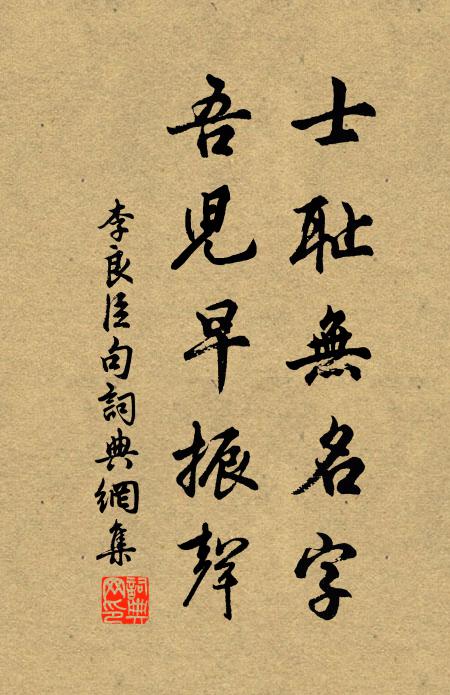 士耻無名字
吾児早振聲
李良臣句詞典網集
詞典
网印